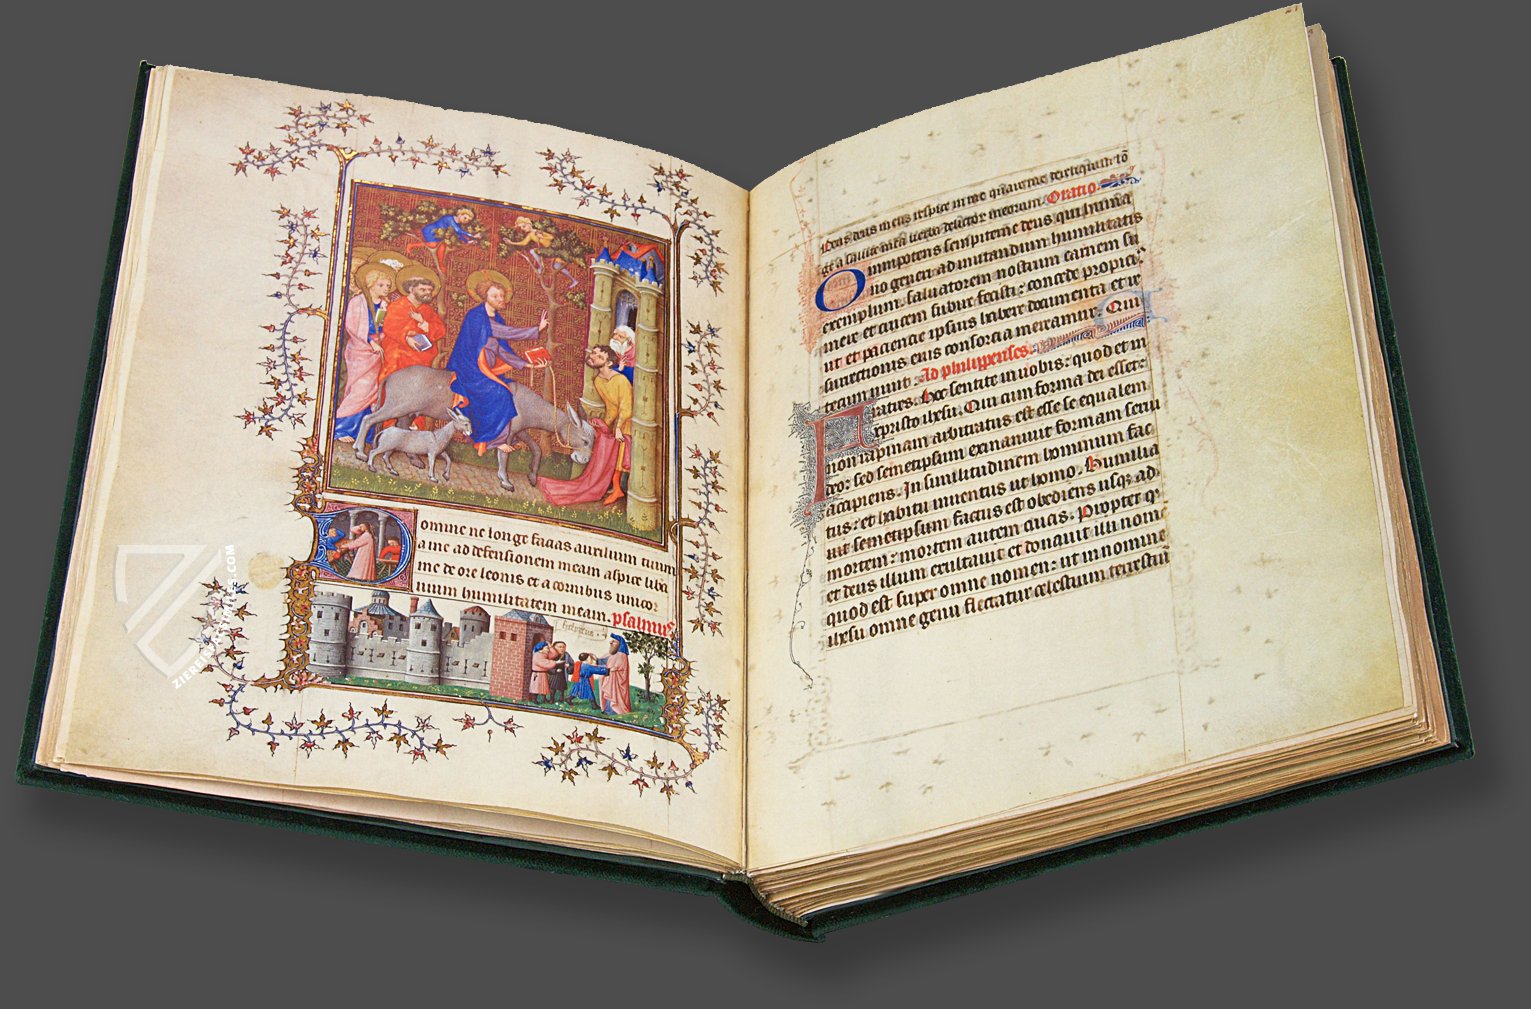 omine ne longe facias auxilium tuum
a me ad defensionem meam aspice libera
me de ore leonis et a cornibus unicor
nium humilitatem meam. psalmus
deus deus meus respice in me quare me dereliquisti lo
ge a salute mea verba delictor meorum. Oratio.
Omnipotens sempiterne deus qui huma
no generi ad imitandum humilitatis
exemplum. saluatorem nostrum carnem su
mere et crucem subire fecisti: concede propici
ut et paciencie ipsius habere documenta et re
surrectionis eius consorcia mereamur. Qui
tecum uiuit. Ad philippenses.
Fratres. Hoc sentite in uobis: quod et in
xpristo ihesu. Qui cum forma dei esset:
non rapinam arbitratus est esse se equalem
deo: sed semetipsum exinaniuit formam serui
accipiens. In similitudinem hominum fac
tus: et habitu inuentus ut homo. Humilia
uit semetipsum factus est obediens usq; ad
mortem: mortem autem crucis. Propter q
et deus illum exultauit et donauit illi nom
quod est super omne nomen: ut in nomine
ihesu omne genu flectatur celestium terrestriu
ZIERLEIS
.COM